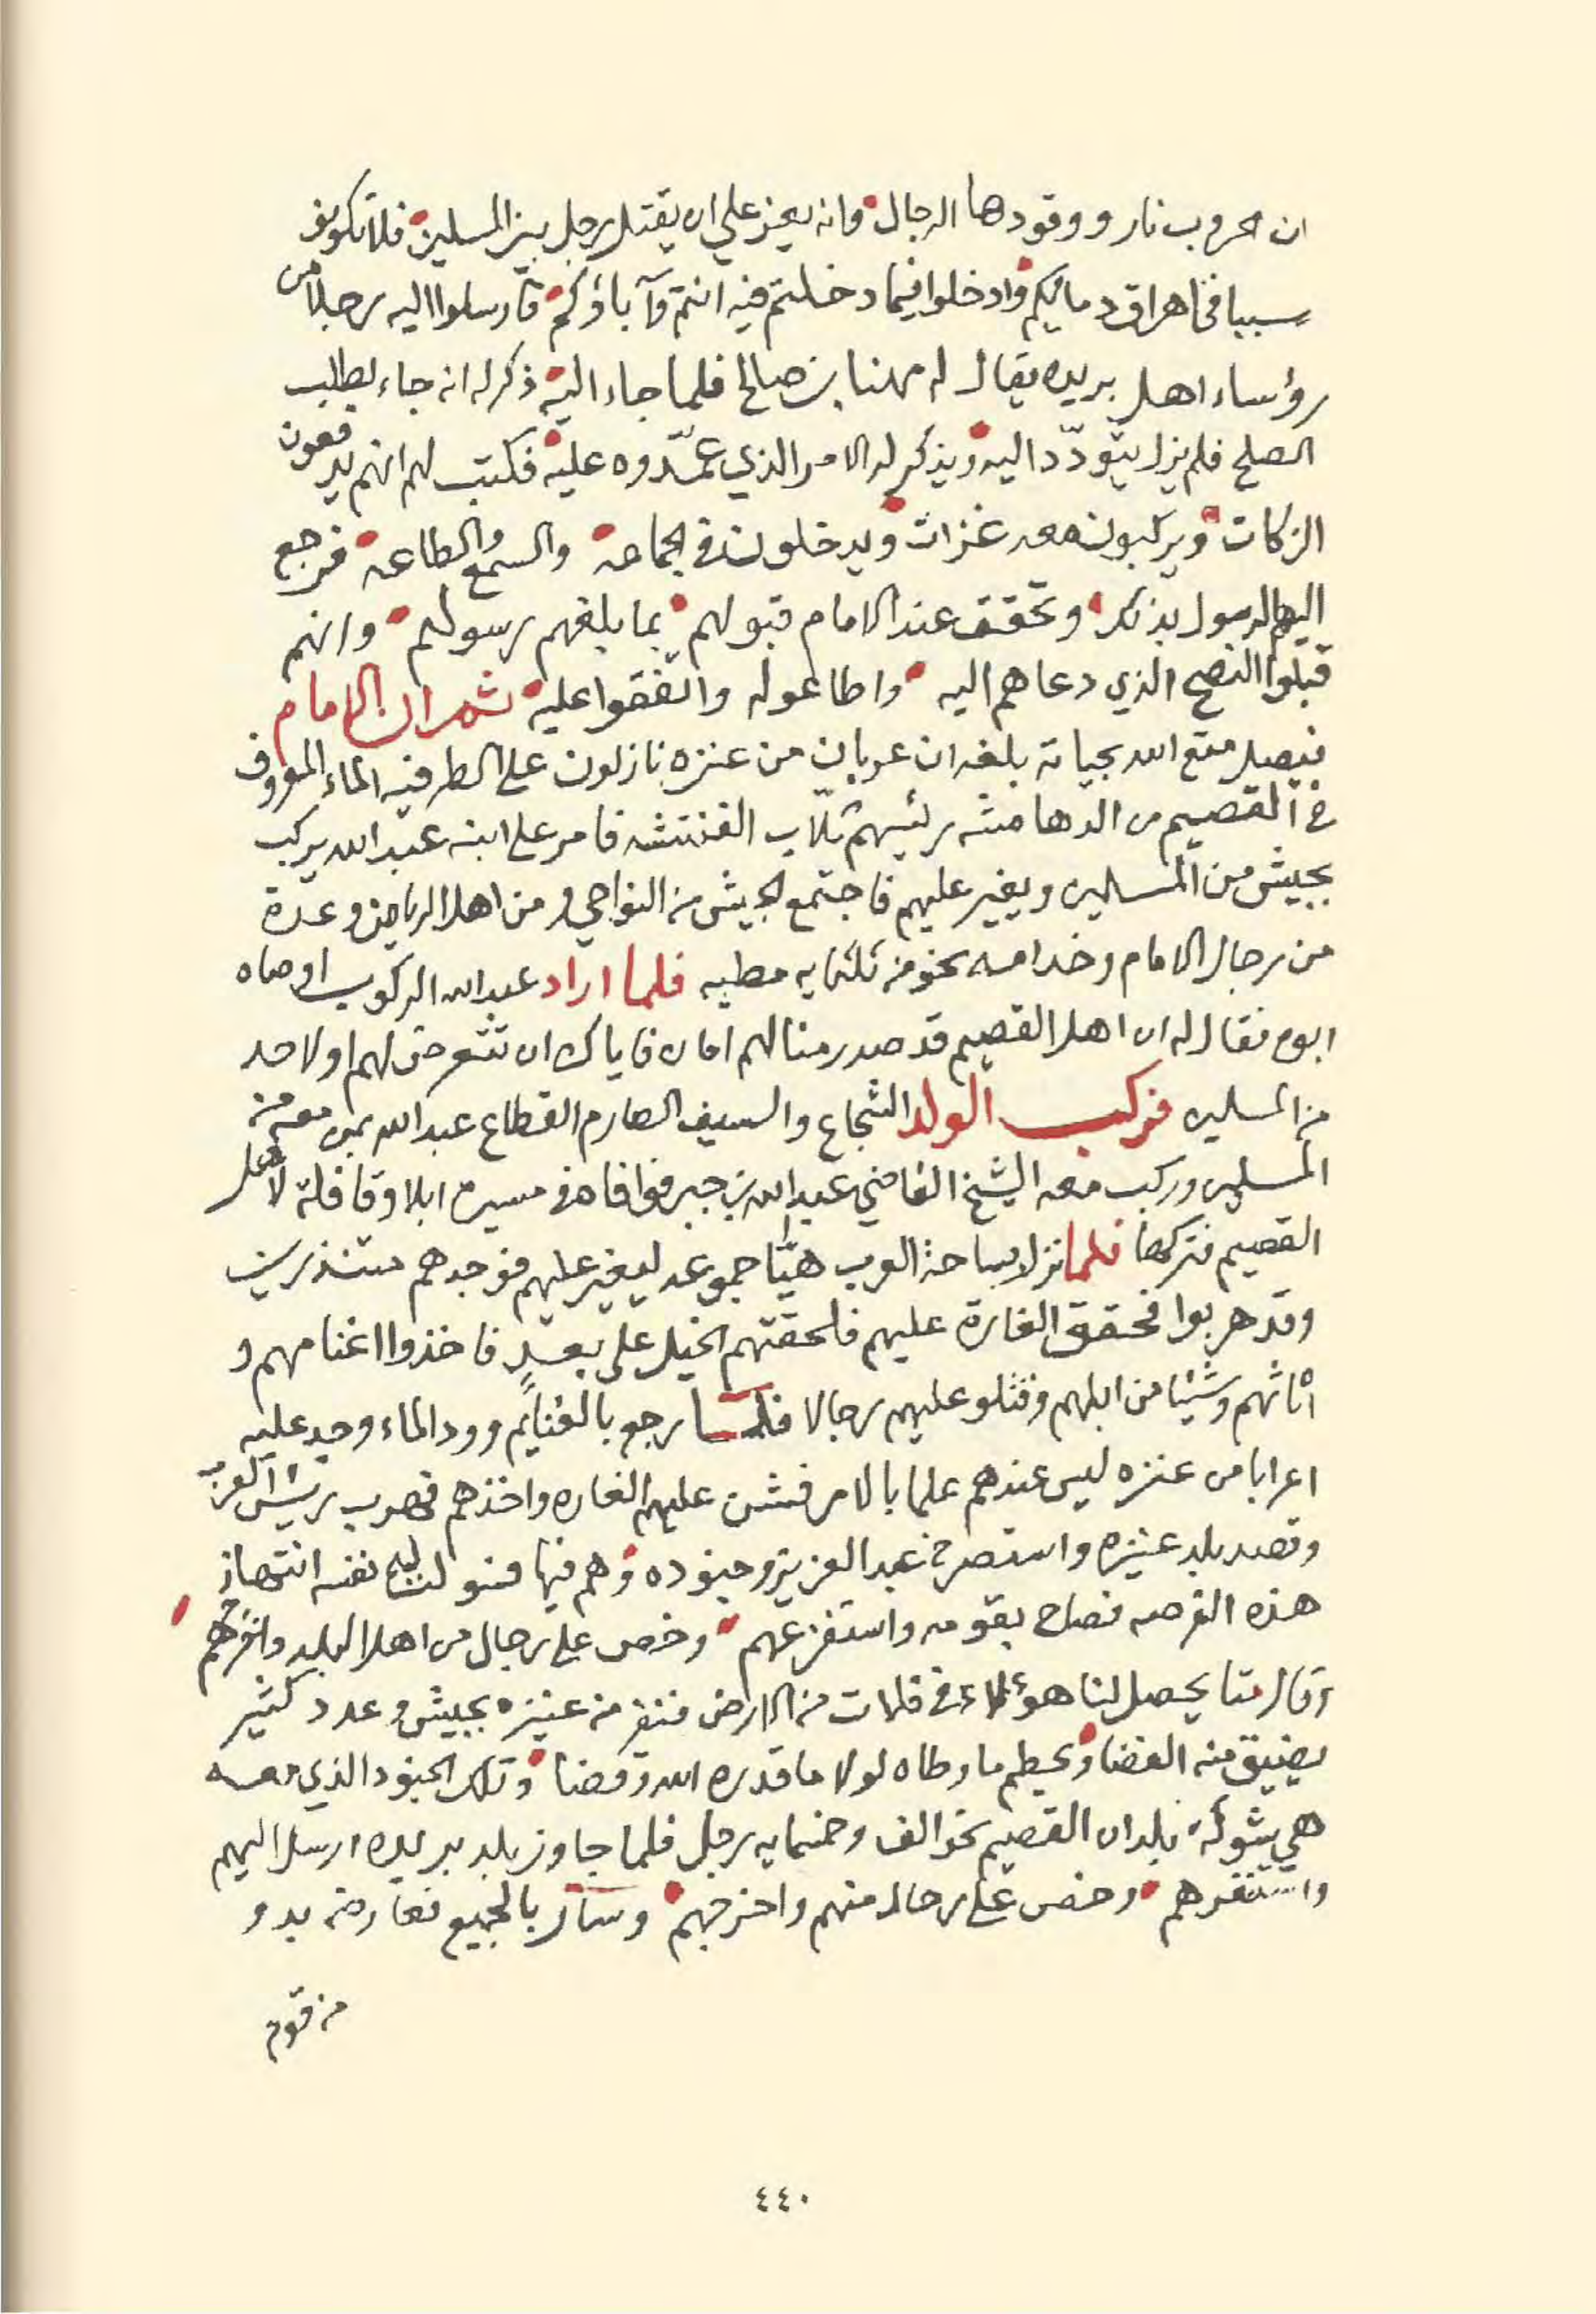 ان الحروب نار ووقودها الرجال وانه يعز علي ان يقتل رجل بين المسلمين فلا تكونوا
سببا في اهراق دمائكم وادخلوا فيما دخلتم فيه انتم وآباؤكم فارسلوا اليه رجلا من
رؤساء اهل بريده يقال له مهنا بن صالح فلما جاء اليه ذكر له انه جاء لطلب
الصلح فلم يزل يتودّد اليه ويذكر له الامر الذي عمّدوه عليه فكتب لهم انهم يدفعون
الزكات ويركبون معه غزات ويدخلون في الجماعه والسمع والطاعه فرجع
اليهم الرسول بذلك وتحقق عند الامام قبولهم بما بلغهم رسولهم وانهم
قبلوا النصح الذي دعاهم اليه واطاعوله واتفقوا عليه ثم ان الامام
فيصل متع الله بحياته بلغه ان عربان من عنزه نازلون على الطرفيه الماء المعروف
في القصيم من الدهامشه رئيسهم الفنتشه فامر على ابنه عبد الله يركب
بجيش من المسلمين ويغير عليهم فاجتمع الجيش من النواحي ومن اهل الرياض وعدة
من رجال الامام وخدامه نحو من ثلثمايه مطيه فلما اراد عبد الله الركوب اوصاه
ابوه فقال له ان اهل القصيم قد صدر منا لهم امان فاياك ان تتعرض لهم او لاحد
من المسلمين فركب الولد الشجاع والسيف الصارم القطاع عبد الله بمن معه من
المسلمين وركب معه الشيخ القاضي عبد الله بن جبر فوافاه في مسيره ابلا وقافلة لاهل
القصيم فتركها فلما نزل بساحة العرب هيّا جموعه ليغير عليهم فوجدهم مستنذرين
وقد هربوا فحقق الغارة عليهم فلحقتهم الخيل على بعدٍ فاخذوا اغنامهم و
اثاثهم وشيئا من ابلهم وقتلو عليهم رجالا فلما رجع بالغنايم وورد الماء وجد عليه
اعرابا من عنزه ليس عندهم علما بالامر فشن عليهم الغاره واخذهم فهرب رئيس العرب
وقصد بلد عنيزه واستصرخ عبد العزيز وجنوده وهم فيها فسولت له نفسه انتهاز
هذه الفرصه فصاح بقومه واستفزعهم وخص على رجال من اهل البلد واخرجهم
وقال متا يحصل لنا هؤلاء في فلات من الارض فنفر من عنيزه بجيش وعدد كثير
يضيق منه الفضا ويحطم ما وطاه لولا ما قدره الله وقضا وتلك الجنود الذي معه
هي شوكة بلدان القصيم نحو الف وخمسمايه رجل فلما جاوز بلد بريده ارسل اليهم
واستنفرهم وخص على رجال منهم واخرجهم وسار بالجميع فعارضه بدو
من قوم
٤٤٠